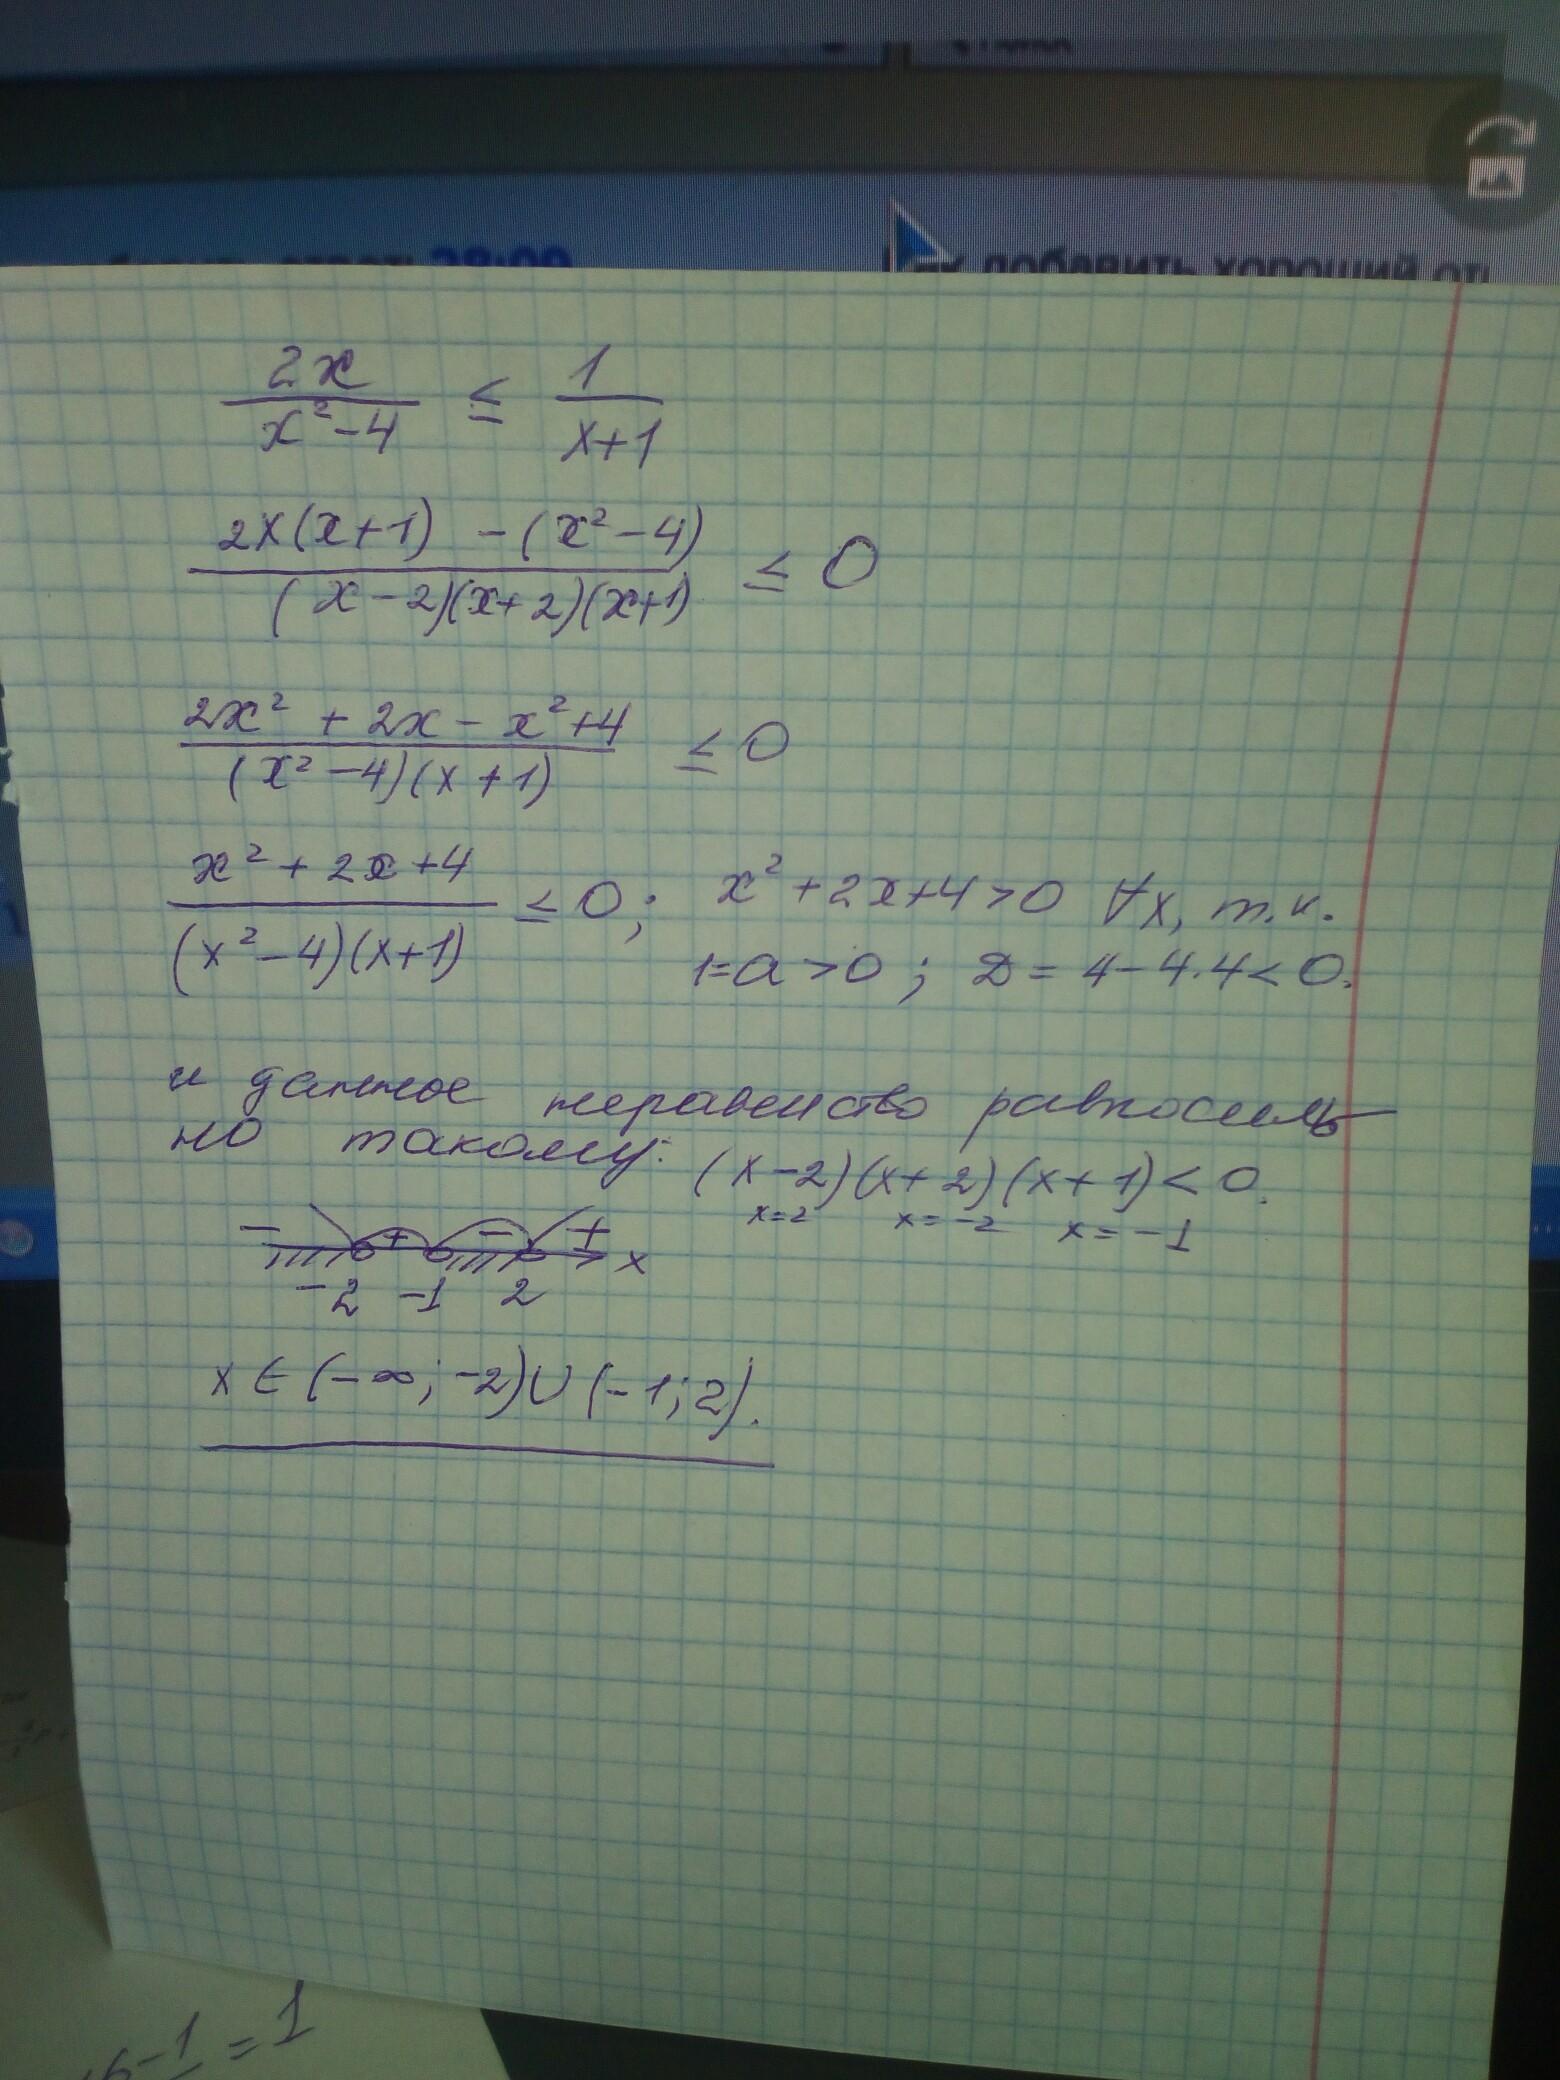 28:09
добавить хороший от
2x / (x² - 4) ≤ 1 / (x+1)
(2x(x+1) - (x² - 4)) / ((x-2)(x+2)(x+1)) ≤ 0
(2x² + 2x - x² + 4) / ((x² - 4)(x + 1)) ≤ 0
(x² + 2x + 4) / ((x² - 4)(x+1)) ≤ 0; x² + 2x + 4 > 0 ∀x, т.к.
1=a > 0; D = 4 - 4·4 < 0.
и данное неравенство равносиль
но такому: (x-2)(x+2)(x+1) < 0.
x=2 x=-2 x=-1
- + - + x
-2 -1 2
x ∈ (-∞; -2) ∪ (-1; 2).
6-1 = 1